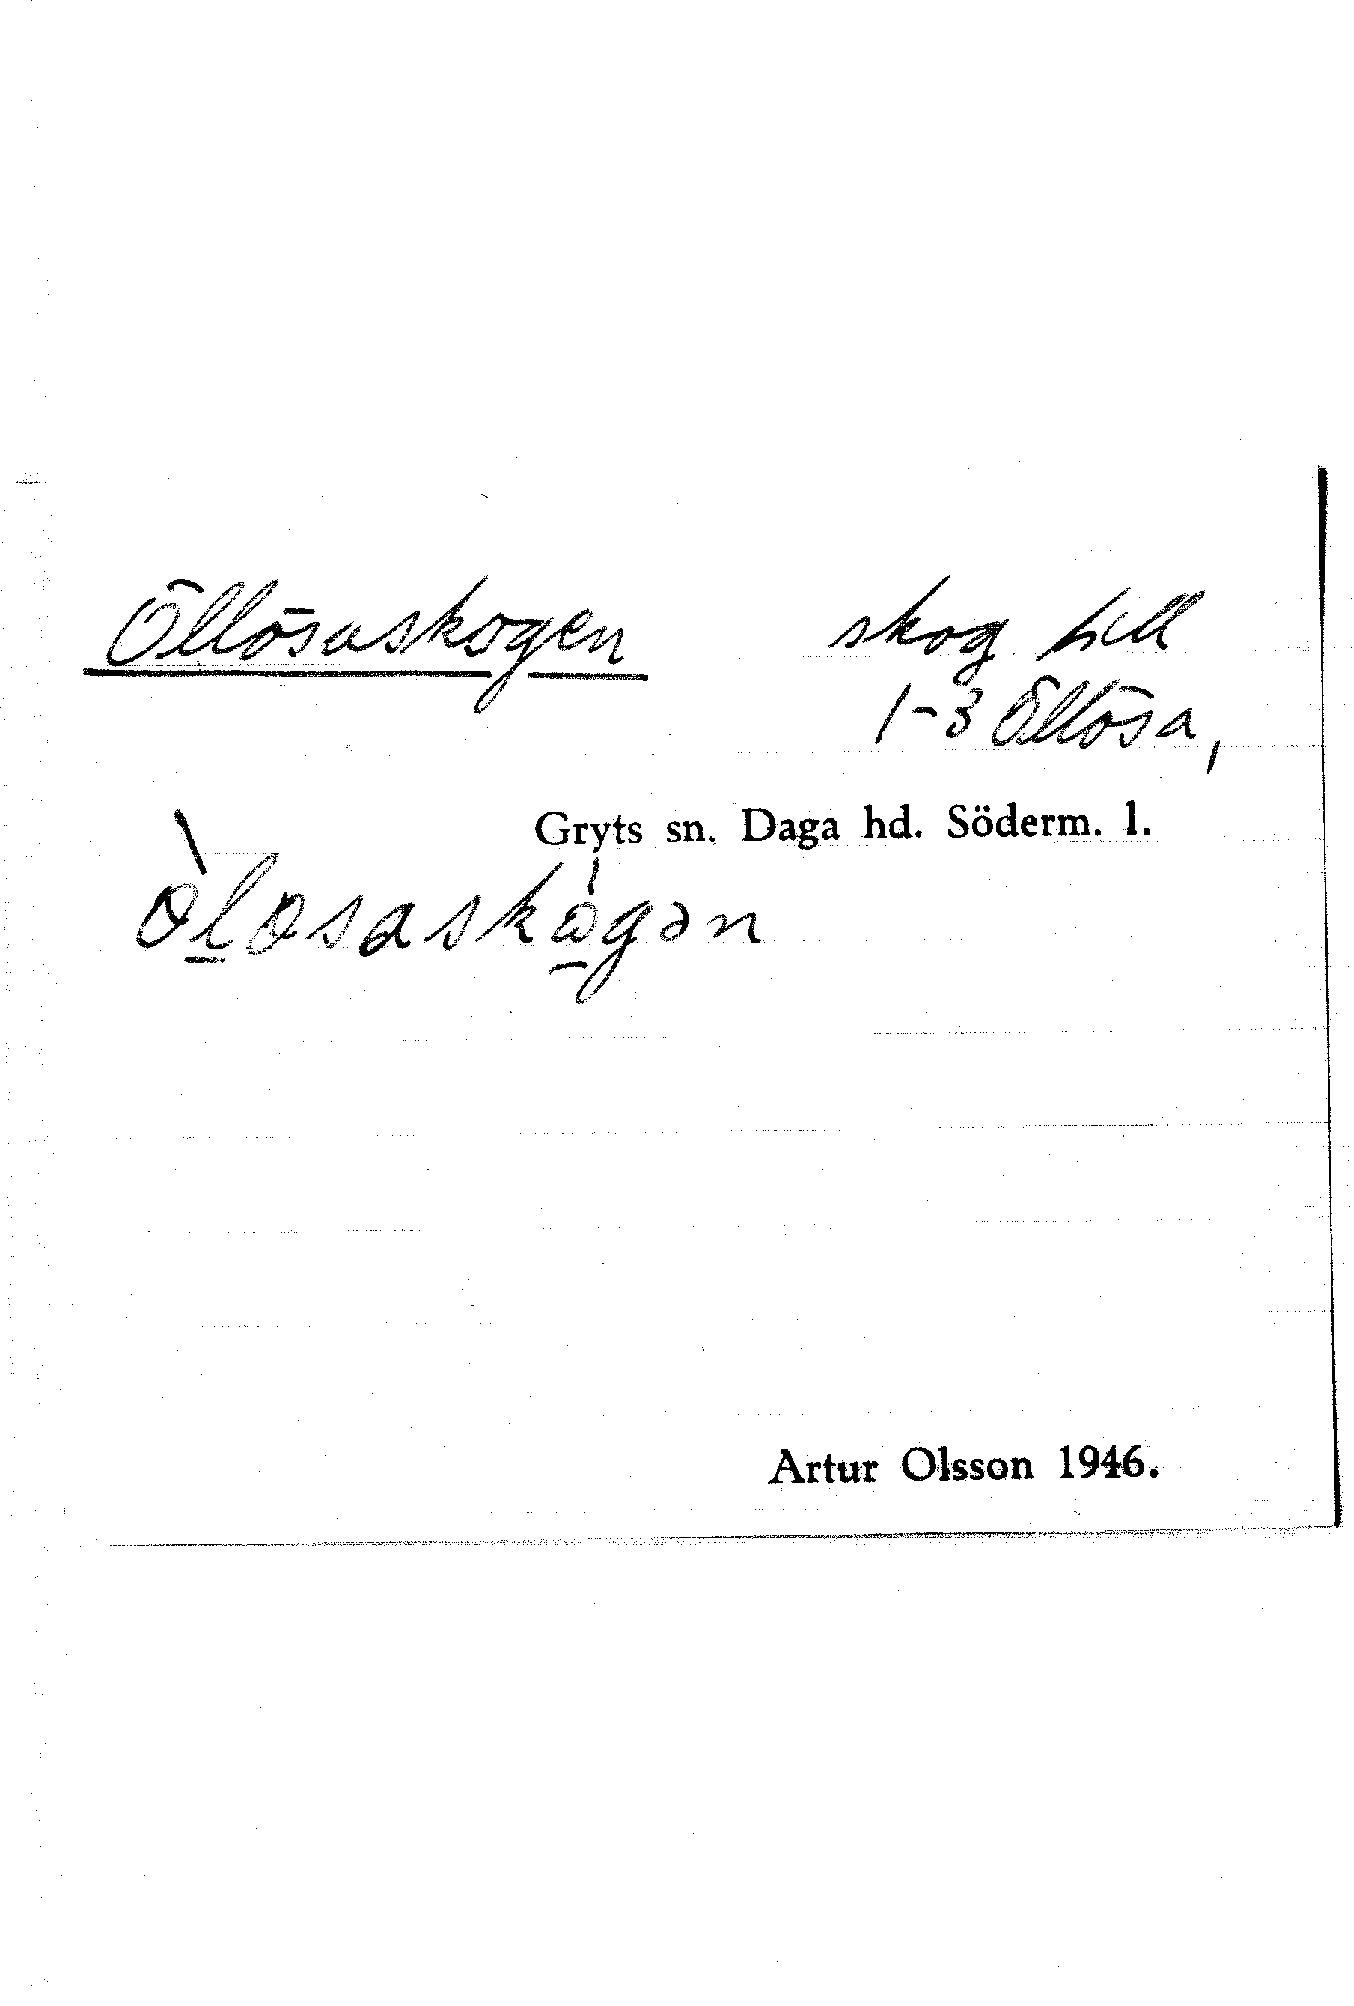 Öllösaskogen skog till
1-3 Öllösa,
Gryts sn. Daga hd. Söderm. l.
Artur Olsson 1946.